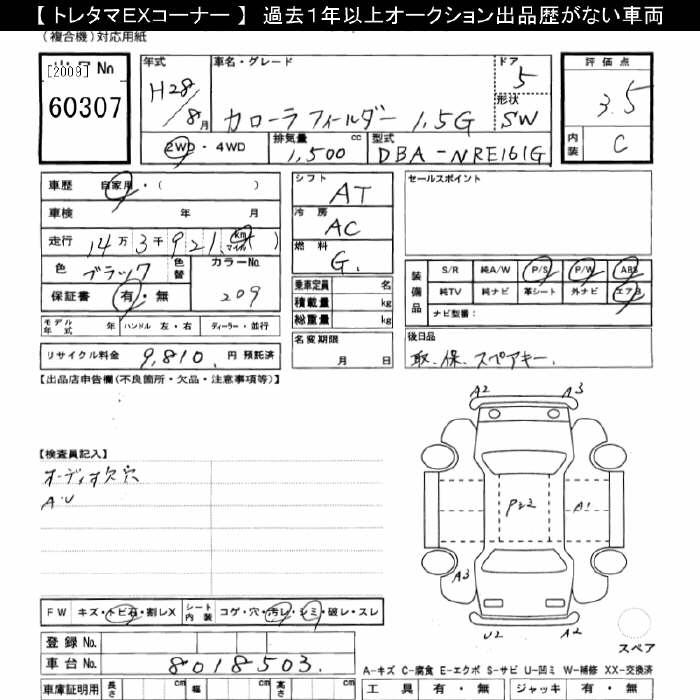 【 トレタマＥＸコーナー 】 過去１年以上オークション出品歴がない車両
(複合機)対応用紙
[2009]
60307
年式
H28/8月
車名・グレード
カローラフィールダー 1.5G
ドア
5
形状
SW
評価点
3.5
内装
C
2WD・4WD
排気量
1,500 cc
型式
DBA-NRE161G
車歴 自家用・( )
車検 年 月
走行 14万3千921 km マイル ( )
色 ブラック 色替
カラーNo.
209
保証書 有・無
シフト
AT
冷房
AC
燃料
G.
セールスポイント
装備品
S/R 純A/W P/S P/W ABS
純TV 純ナビ 革シート 外ナビ エアB
ナビ型番:
乗車定員 名
積載量 kg
総重量 kg
モデル年式 年 ハンドル 左・右 ディーラー・並行
名変期限
月 日
後日品
取.保.スペアキー.
リサイクル料金 9,810. 円 預託済
【出品店申告欄(不良箇所・欠品・注意事項等)】
【検査員記入】
オーディオ欠穴
A.U
A2 A3
P22 A1
A3
U2 A2
スペア
FW キズ・トビ石・割レX シート内装 コゲ・穴・汚レ・シミ・破レ・スレ
登録No.
車台No. 8018503.
車庫証明用 長さ cm 幅 cm 高さ cm
A-キズ C-腐食 E-エクボ S-サビ U-凹ミ W-補修 XX-交換済
工具 有・無 ジャッキ 有・無